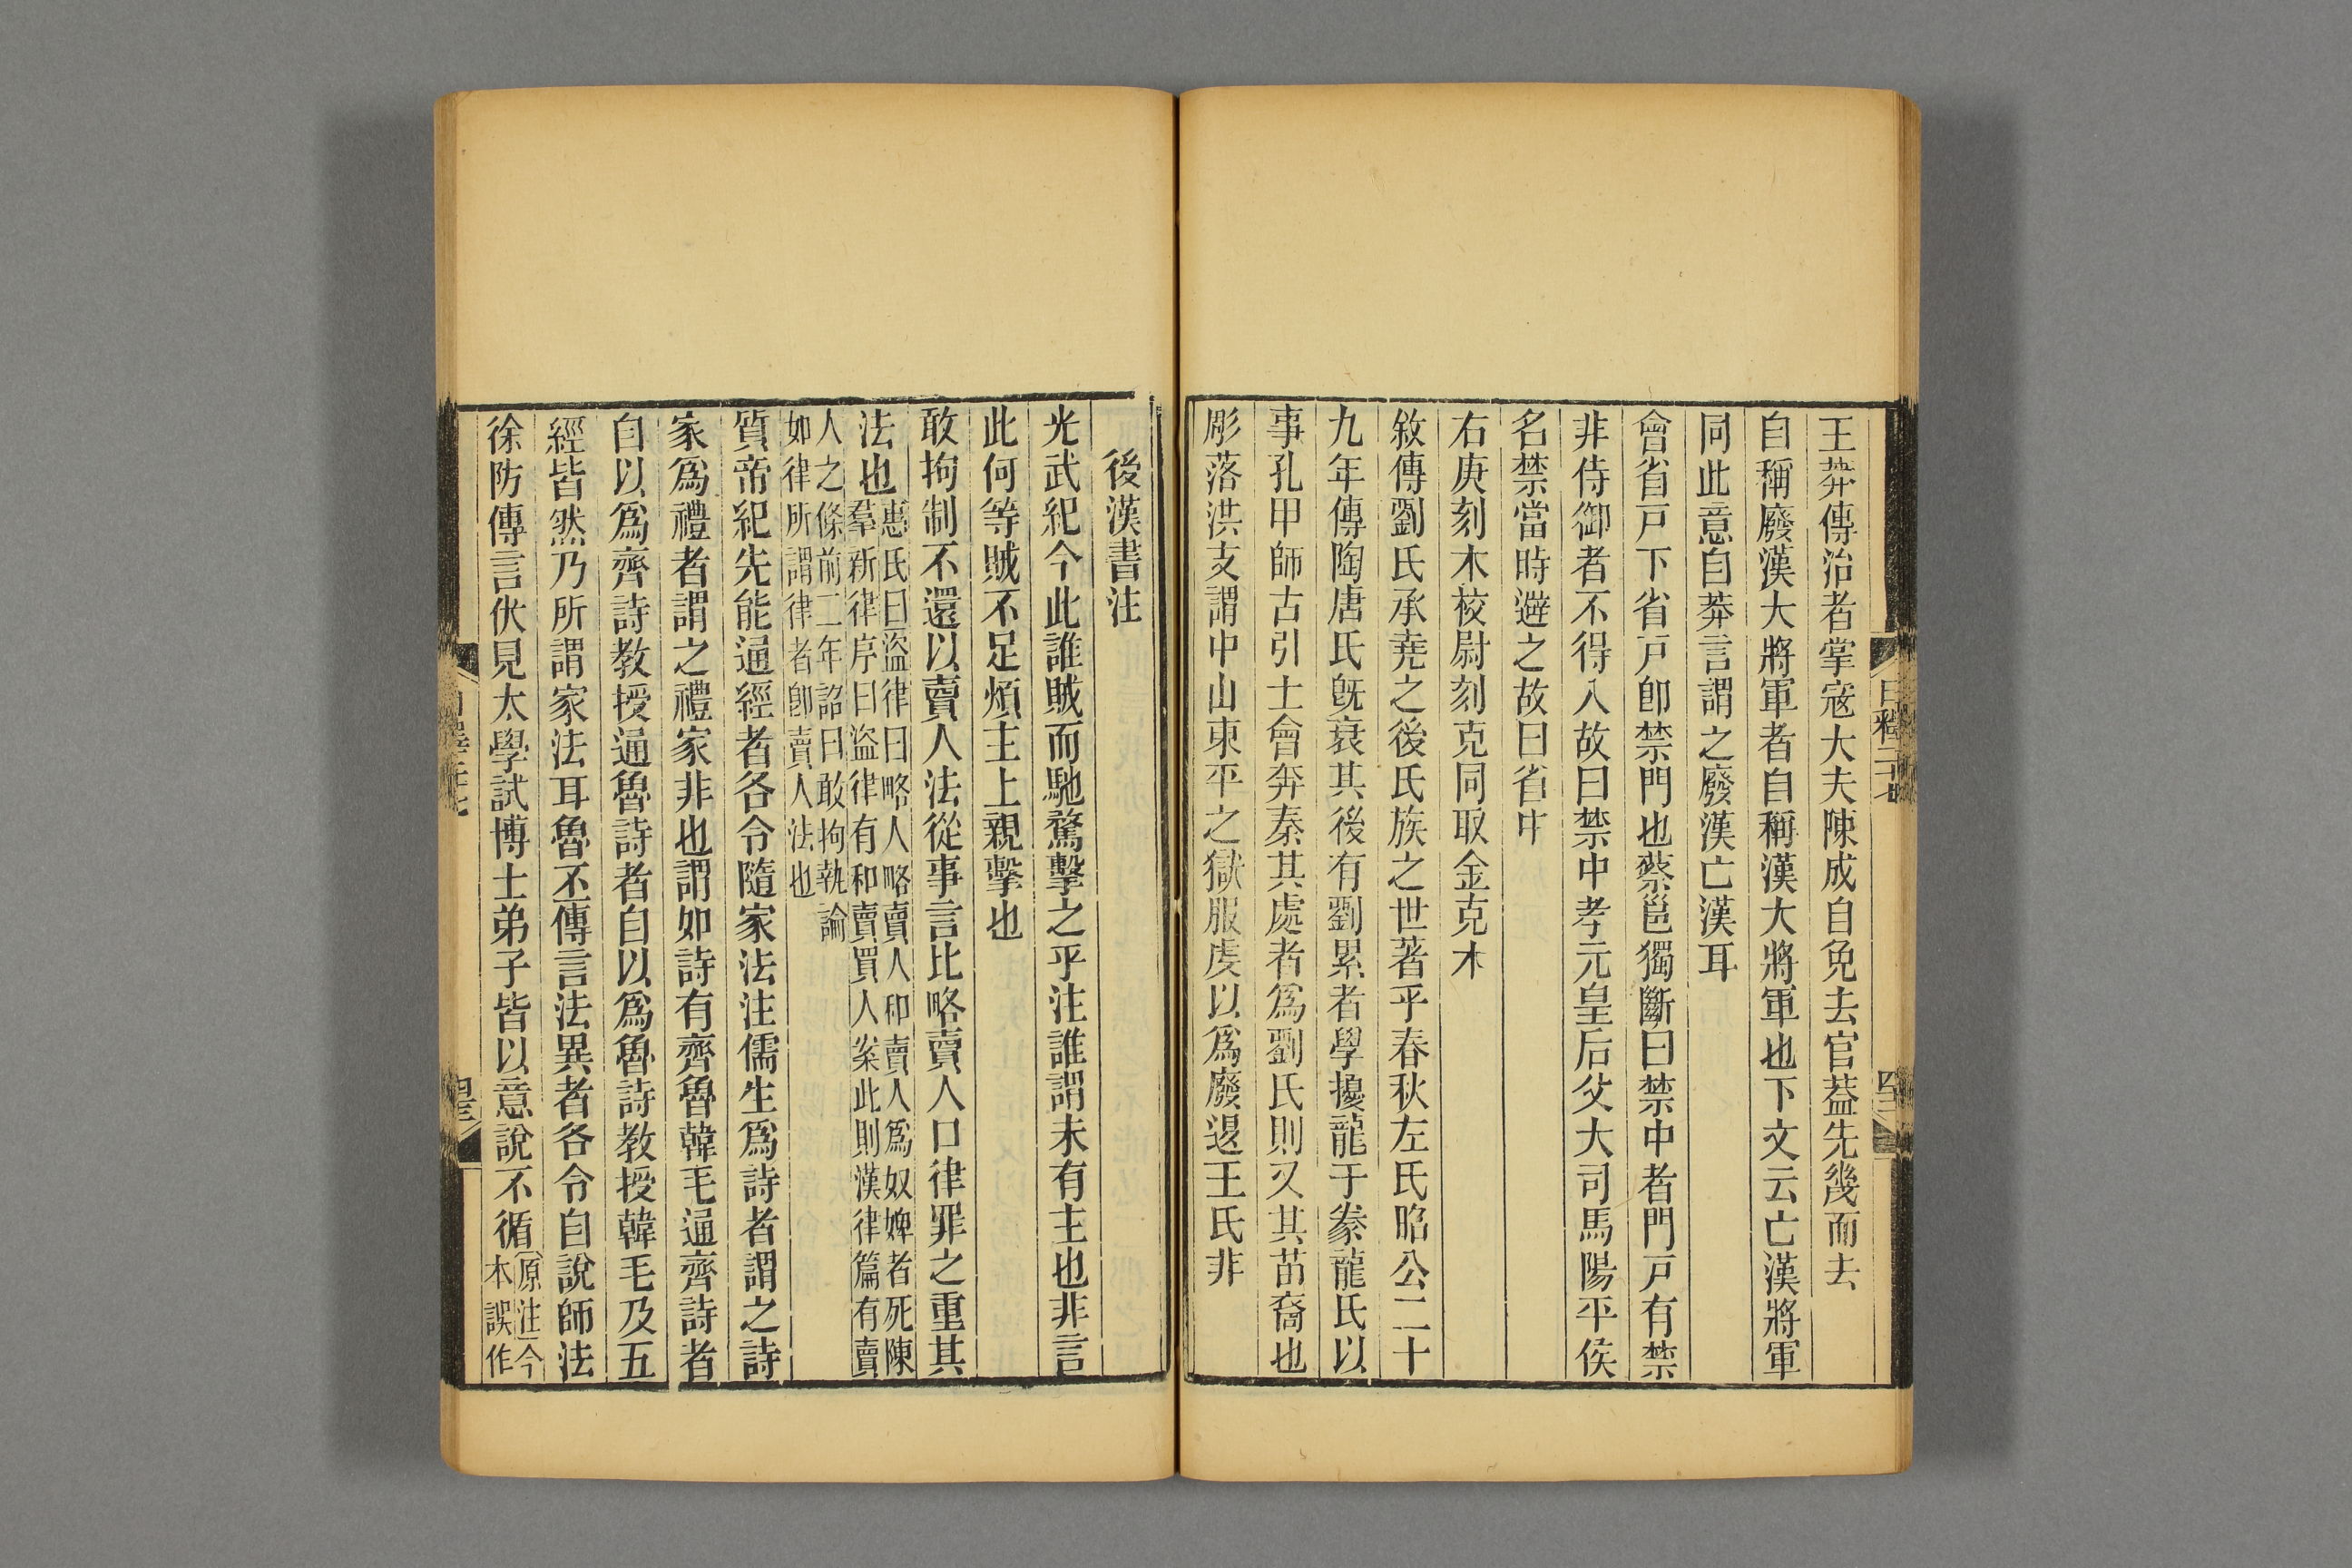 王莽傳治者掌寇大夫陳成自免去官葢先幾而去
自稱廢漢大將軍者自稱漢大將軍也下文云亡漢將軍
同此意自莽言謂之廢漢亡漢耳
會省戸下省戸卽禁門也蔡邕獨斷曰禁中者門戸有禁
非侍御者不得入故曰禁中孝元皇后父大司馬陽平侯
名禁當時避之故曰省中
右庚刻木校尉刻克同取金克木
敘傳劉氏承堯之後氏族之世著乎春秋左氏昭公二十
九年傳陶唐氏旣衰其後有劉累者學擾龍于豢龍氏以
事孔甲師古引士會奔秦其處者爲劉氏則又其苗裔也
彫落洪支謂中山東平之獄服虔以爲廢退王氏非
後漢書注
光武紀今此誰賊而馳騖擊之乎注誰謂未有主也非言
此何等賊不足煩主上親擊也
敢拘制不還以賣人法從事言比略賣人口律罪之重其
法也惠氏曰盜律曰略人略賣人和賣人爲奴婢者死陳
羣新律序曰盜律有和賣買人案此則漢律篇有賣
人之條前二年詔曰敢拘執論
如律所謂律者卽賣人法也
質帝紀先能通經者各令隨家法注儒生爲詩者謂之詩
家爲禮者謂之禮家非也謂如詩有齊魯韓毛通齊詩者
自以爲齊詩教授通魯詩者自以爲魯詩教授韓毛及五
經皆然乃所謂家法耳魯丕傳言法異者各令自說師法
徐防傳言伏見太學試博士弟子皆以意說不循〔原注〕今
本誤作
日釋二十七